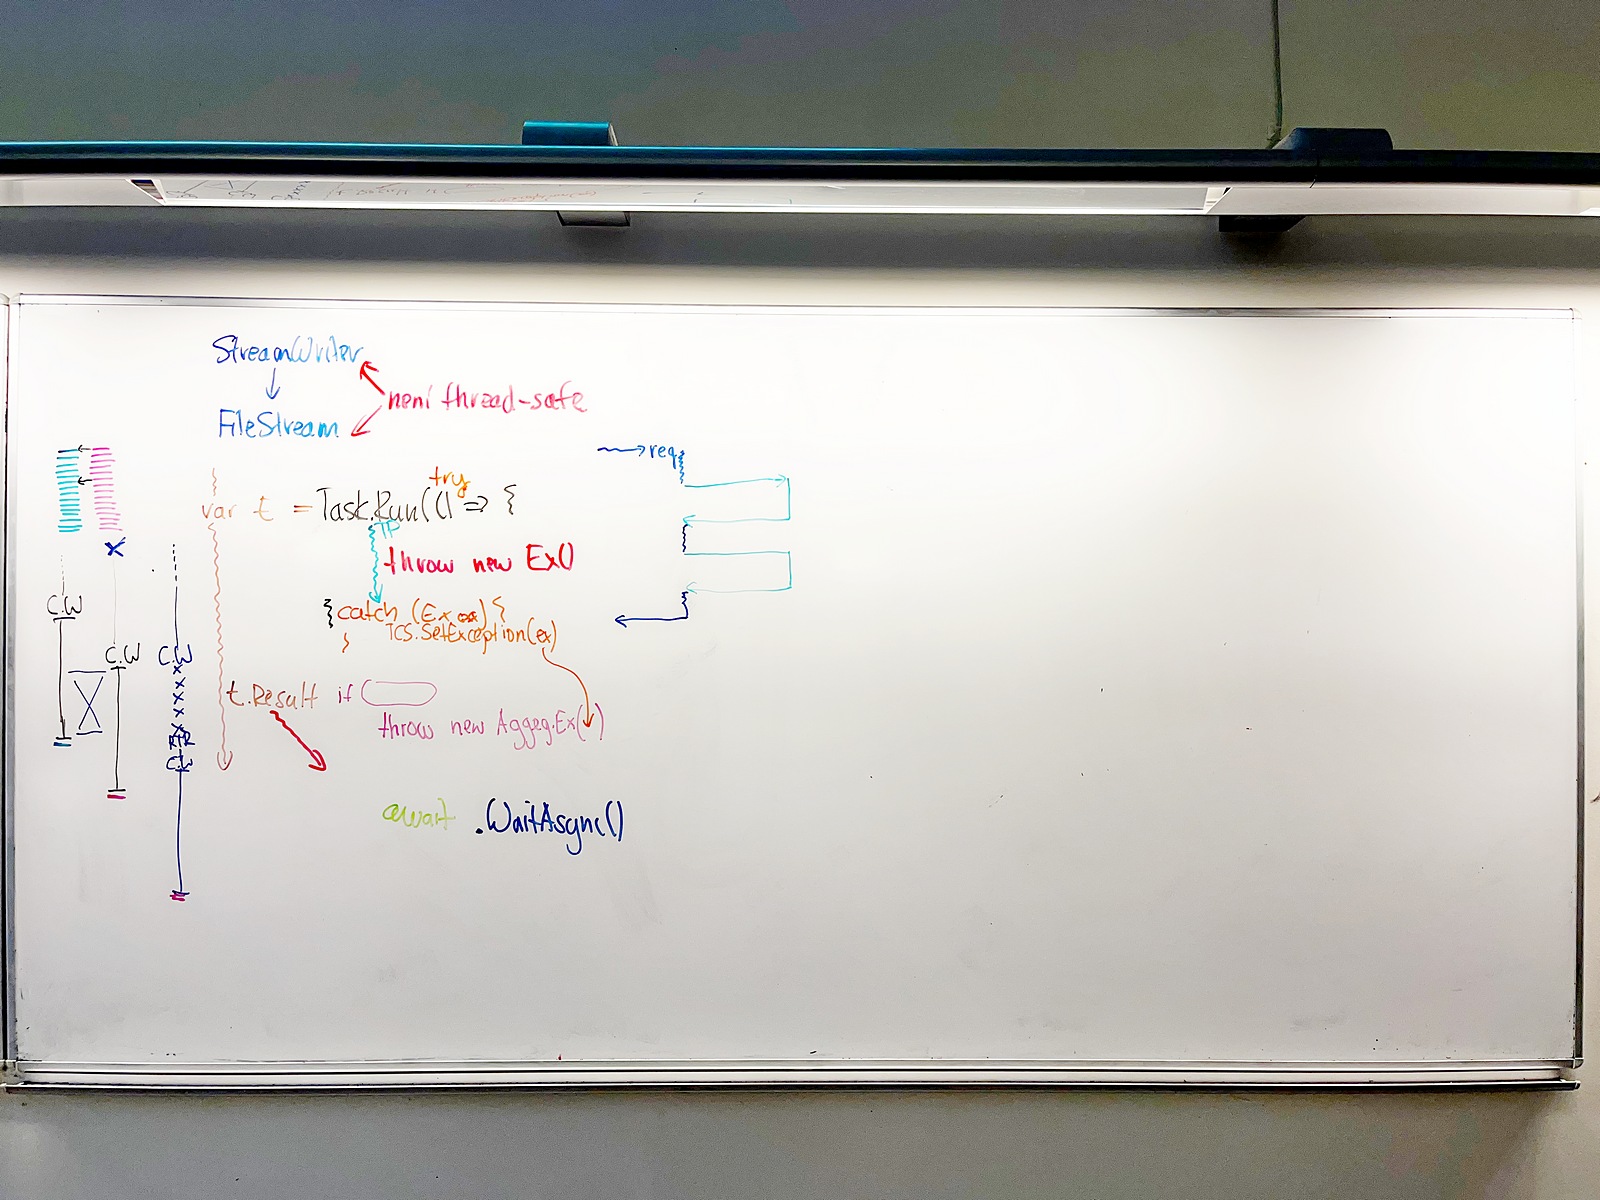 StreamWriter
není thread-safe
FileStream
req
try
var t = Task.Run(() => {
TP
throw new Ex()
} catch (Ex ex) {
TCS.SetException(ex)
}
C.W
C.W
C.W
t.Result if
throw new Aggeg.Ex( )
C.W
await .WaitAsync()